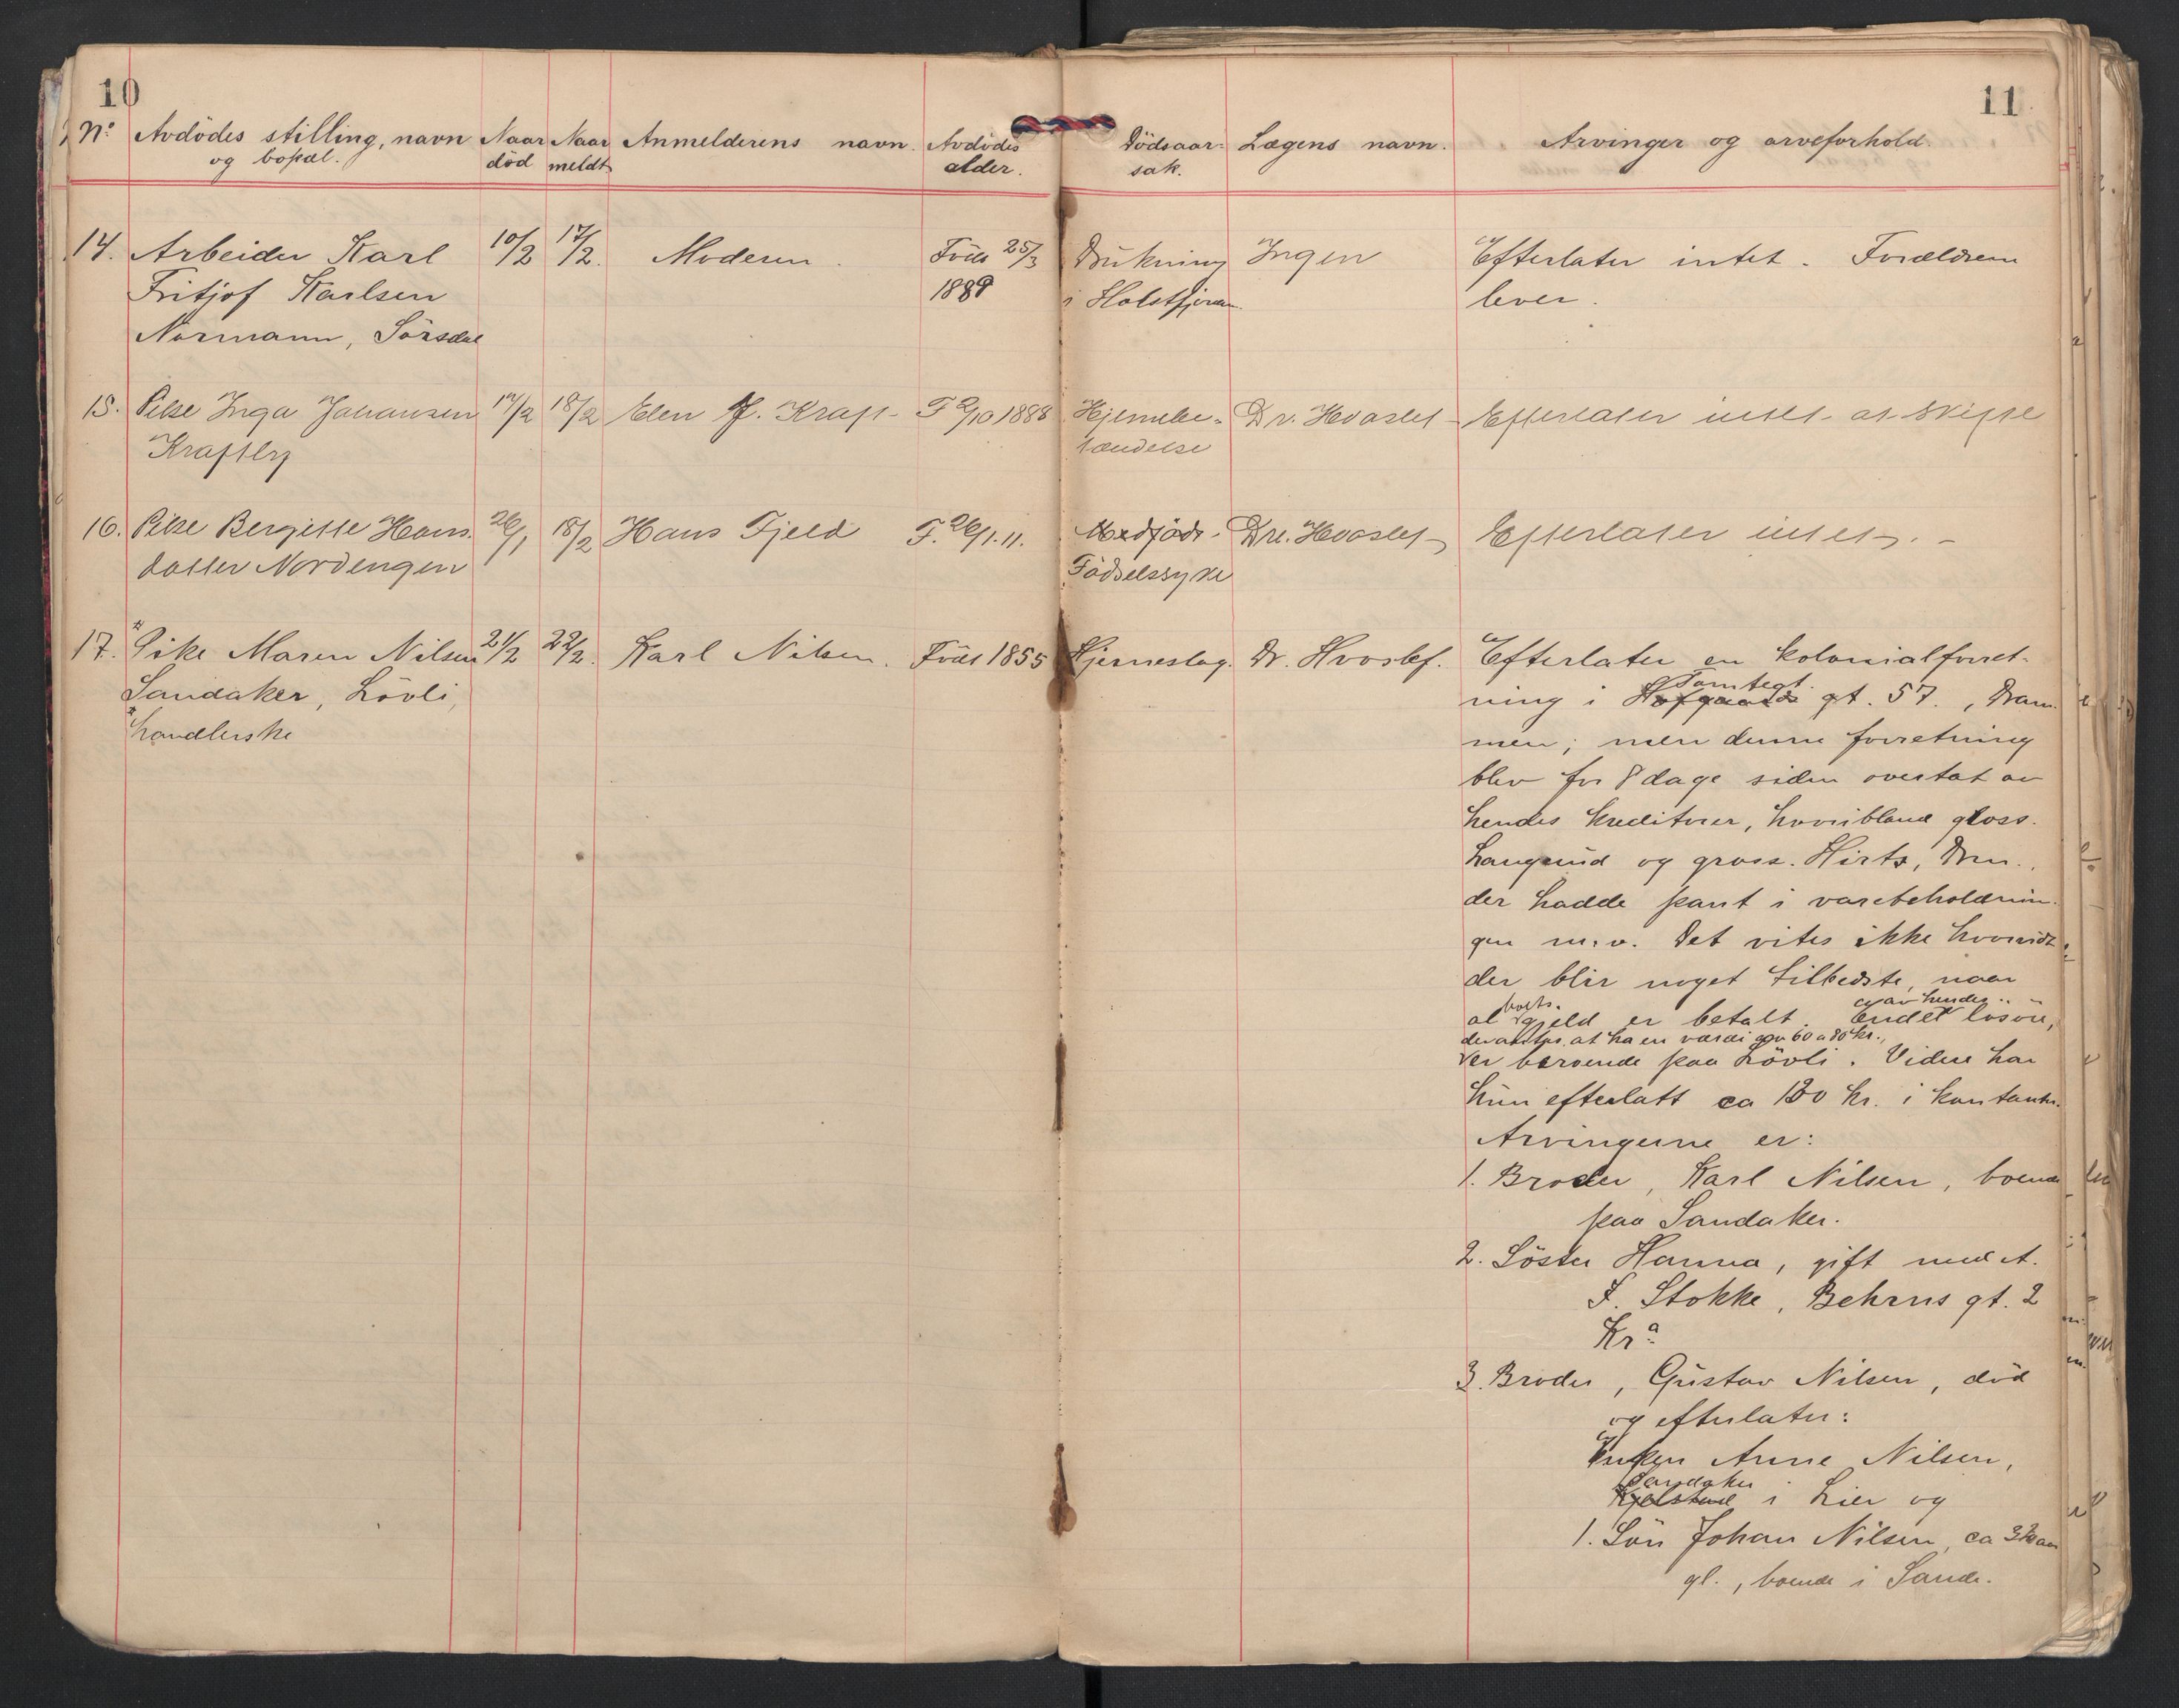 10
11
No Avdödes stilling, navn og bopæl. Naar död Naar meldt Anmelderens navn. Avdödes alder. Dödsaarsak. Lægens navn. Arvinger og arveforhold.
14. Arbeider Karl 10/2 17/2. Moderen. Född 25/3 Drukning Ingen Efterlater intet. Forældrene
Fritjof Karlsen 1889 i Holsfjorden lever.
Normann, Sörsdal
15. Pike Inga Johansen 17/2 18/2 Elen J. Kraft F 2/10 1888 Hjernebe- Dr. Hvoslef Efterlater intet at skifte
Kraftby tændelse
16. Pike Bergitte Hans- 26/1 18/2 Hans Fjeld F. 26/1. 11. Medfödt Dr. Hvoslef Efterlater intet. -
datter Nordengen Födselssyke
17. Pike Maren Nilsen 21/2 22/2. Karl Nilsen. Född 1855 Hjerneslag. Dr. Hvoslef. Efterlater en kolonialforret-
Sandaker, Lövli, Tomtegt.
handlerske ning i Hofgaards gt. 57., Dram
men; men denne forretning
blev for 8 dage siden overtat av
hendes kreditorer, hvoribland gross.
Langrud og gross. Hirts, Drm.,
der hadde pant i varebeholdnin-
gen m.v. Det vites ikke hvorvidt
der blir noget tilbedste, naar
al gjeld er betalt. Endel av hendes lösöre,
der antas at ha en værdi av 60 a 80 kr.,
er beroende paa Lövli. Videre har
hun efterlatt ca 130 kr. i kontanter.
Arvingerne er:
1. Broder, Karl Nilsen, boende
paa Sandaker.
2. Söster Hanna, gift med A.
F. Stokke, Behrns gt. 2
Kra
3. Broder, Gustav Nilsen, död
og efterlater:
Enken Anne Nilsen,
Sandaker
Kjelstad i Lier og
1. Sön Johan Nilsen, ca 30 aar
gl., boende i Sande.